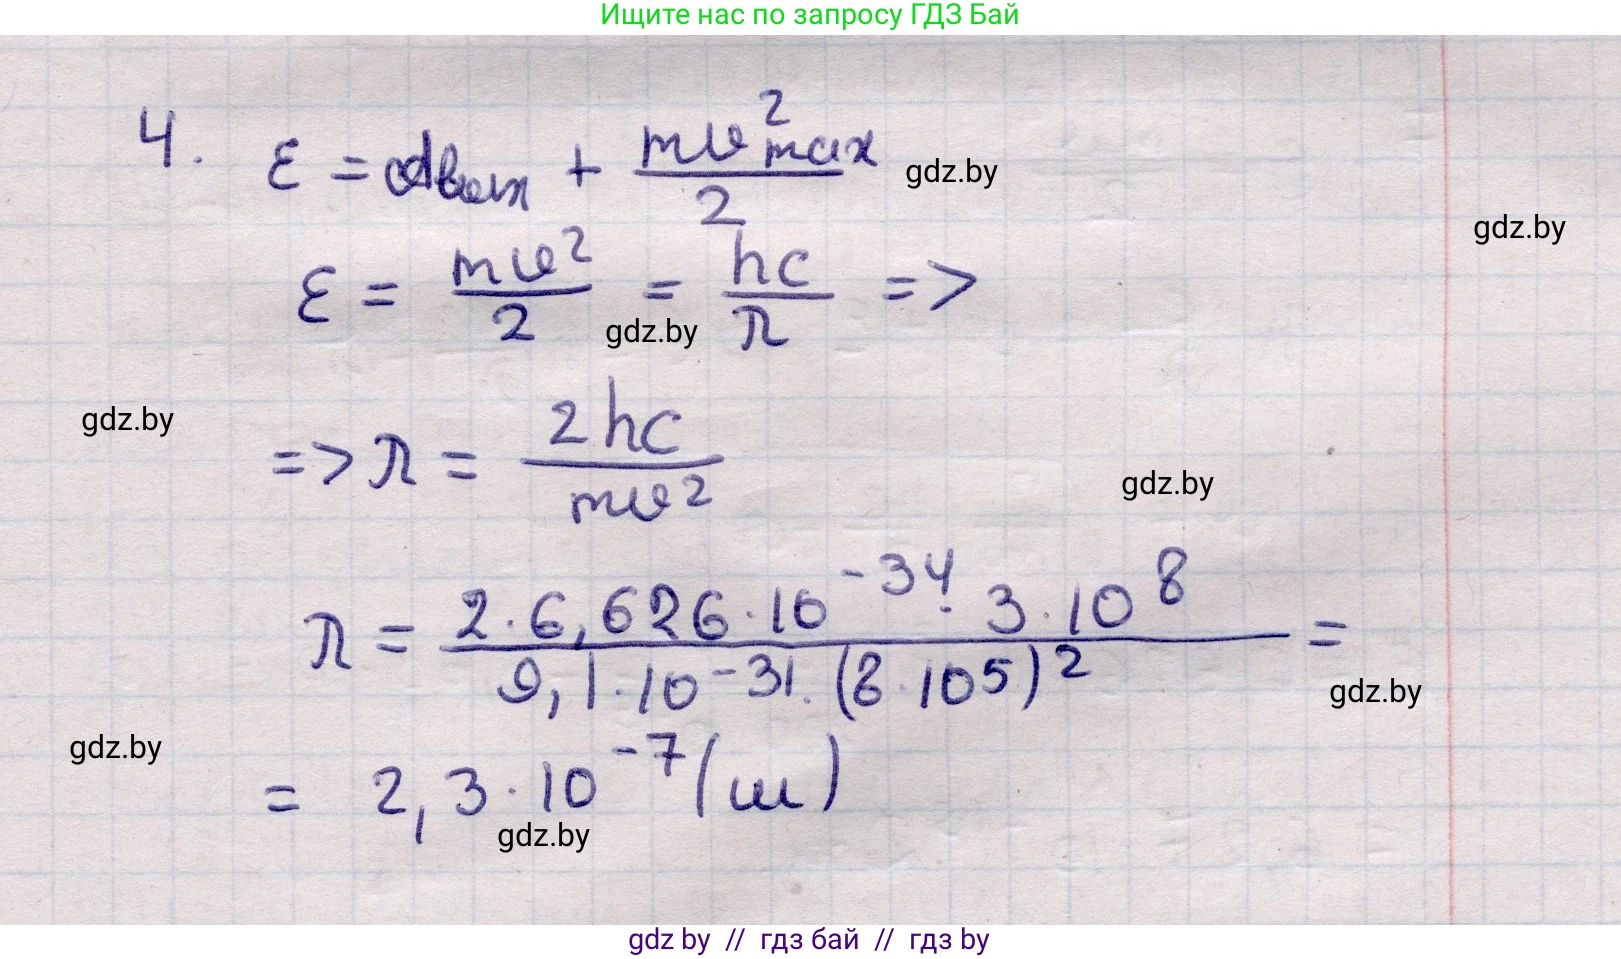 Ищите нас по запросу ГДЗ Бай
4. ε = Aвых + mv²max / 2
gdz.by
gdz.by
ε = mv² / 2 = hc / λ =>
gdz.by
gdz.by
=> λ = 2hc / mv²
gdz.by
λ = 2·6,626·10⁻³⁴·3·10⁸ / 9,1·10⁻³¹·(8·10⁵)² =
gdz.by
gdz.by
= 2,3·10⁻⁷(м)
gdz.by
gdz by // гдз бай // гдз by